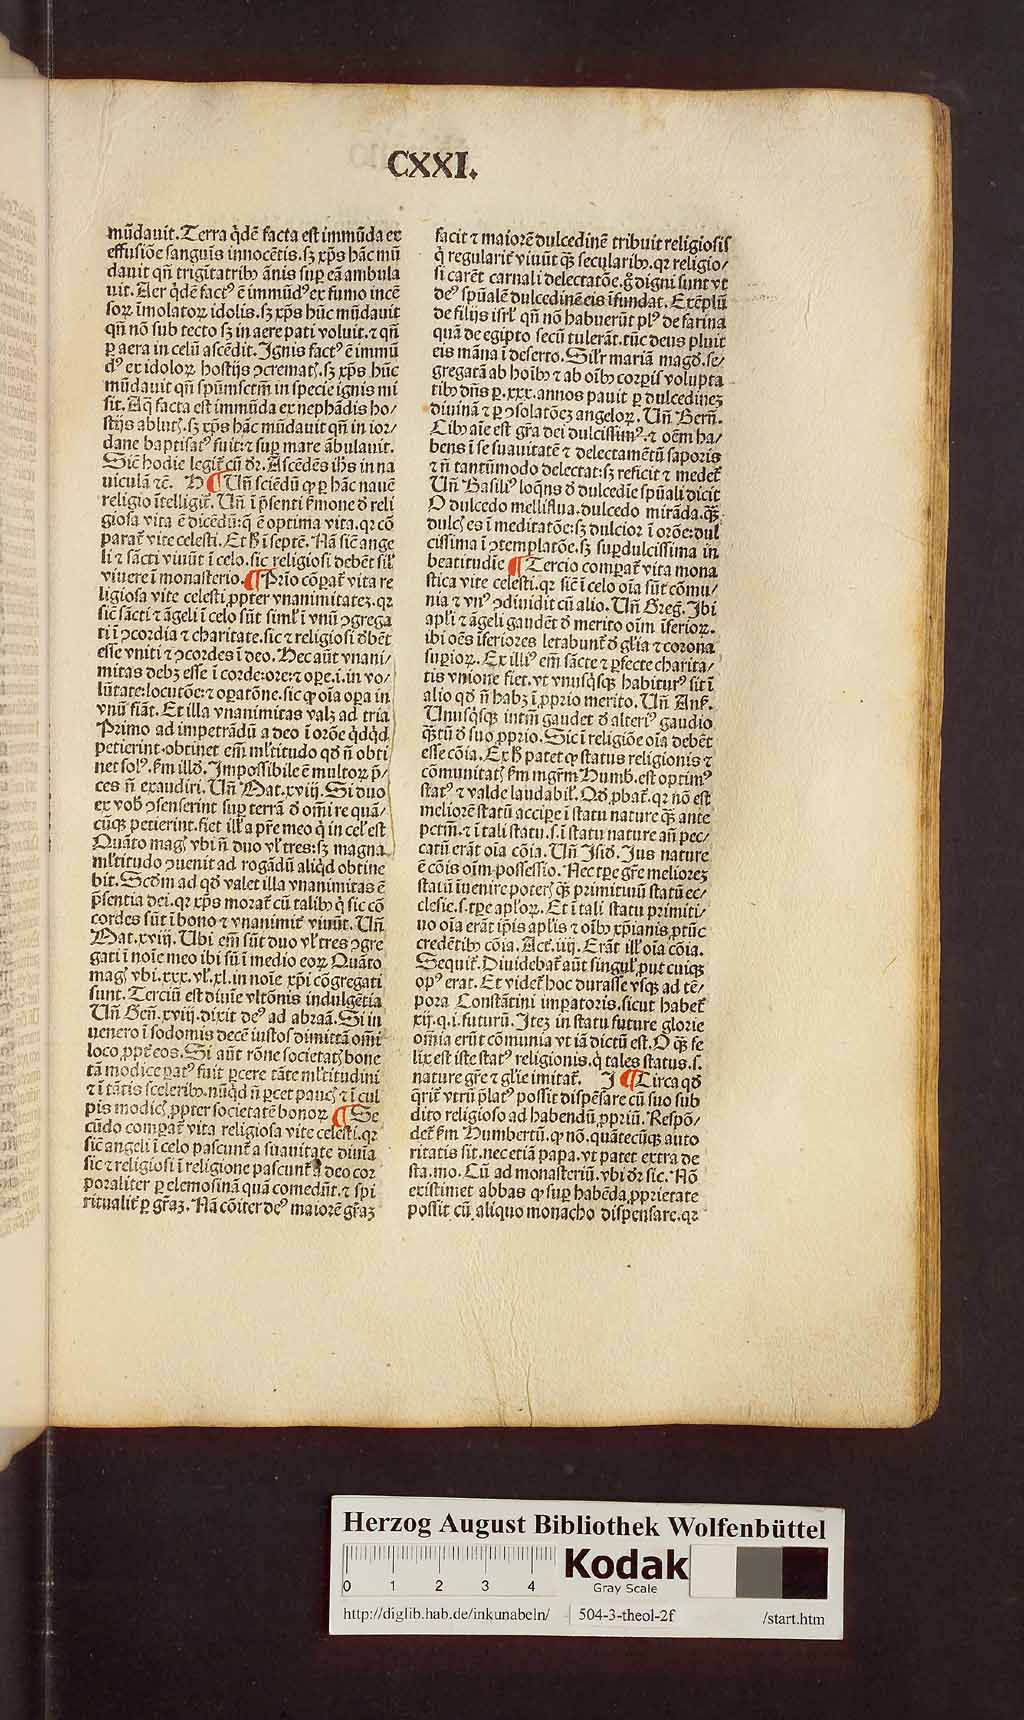 CXXI.
mūdauit. Terra q̇dē facta est immūda ex
effusiōe sanguis innocētis. sꝫ xp̄s hāc mū
dauit qn̄ trigītatribꝰ ānis suꝑ eā ambula
uit. Aer q̇dē factꝰ ē immūdꝰ ex fumo incē
soꝝ īmolatoꝝ idolis. sꝫ xp̄s hūc mūdauit
qn̄ nō sub tecto sꝫ in aere pati voluit. ⁊ qn̄
ꝑ aera in celū ascēdit. Ignis factꝰ ē immū
dꝰ ex idoloꝝ hostijs ↄcrematꝭ. sꝫ xp̄s hūc
mūdauit qn̄ spūmsctm̄ in specie ignis mi
sit. Aq̄ facta est immūda ex nephādis ho/
stijs ablutꝭ. sꝫ xp̄s hāc mūdauit qn̄ in ior/
dane baptisatꝰ fuit: ⁊ suꝑ mare ābulauit.
Sic̄ hodie legit̄ cū dr̄. Ascēdēs ihs in na
uiculā ⁊c̄. H ¶ Un̄ sciēdū ꝙ ꝑ hāc nauē
religio ītelligit̄. Un̄ ī p̄senti s̄mone ð reli
giosa vita ē dicēdū: q̄ ē optima vita. qꝛ cō
parat̄ vite celesti. Et h̄ ī septē. Nā sic̄ ange
li ⁊ sācti viuūt ī celo. sic religiosi debēt sil̄r
viuere ī monasterio. ¶ Prīo cōꝑat̄ vita re
ligiosa vite celesti ꝓpter vnanimitateꝫ. qꝛ
sic̄ sācti ⁊ āgeli ī celo sūt siml̄ ī vnū ↄgrega
ti ī ↄcordia ⁊ charitate. sic ⁊ religiosi ðbēt
esse vniti ⁊ ↄcordes ī deo. Hec aūt vnani/
mitas debꝫ esse ī corde: ore: ⁊ oꝑe. i. in vo/
lūtate: locutōe: ⁊ oꝑatōne. sic ꝙ oīa oꝑa in
vnū fiāt. Et illa vnanimitas valꝫ ad tria
Primo ad impetrādū a deo ī orōe q̇dq̇d
petierint. obtinet em̄ ml̄titudo qð n̄ obti/
net solꝰ. s̄m illð. Impossibile ē multoꝝ p̄/
ces n̄ exaudiri. Un̄ Mat. xviij. Si duo
ex vob̄ ↄsenserint suꝑ terrā ð om̄i re quā/
cūqꝫ petierint. fiet ill̄ a pr̄e meo q̇ in cel̄ est
Quāto magꝭ vbi n̄ duo vl̄ tres: sꝫ magna
ml̄titudo ↄuenit ad rogādū aliq̇d obtine
bit. Scðm ad qð valet illa vnanimitas ē
p̄sentia dei. qꝛ xp̄s morat̄ cū talibꝰ q̇ sic cō
cordes sūt ī bono ⁊ vnanimit̄ viuūt. Un̄
Mat. xviij. Ubi em̄ sūt duo vl̄ tres ↄgre
gati ī noīe meo ibi sū ī medio eoꝝ Quāto
magꝭ vbi. xxx. vl̄. xl. in noīe xp̄i cōgregati
sunt. Terciū est diuīe vltōnis indulgētia
Un̄ Gen̄. xviij. dixit deꝰ ad abraā. Si in
uenero ī sodomis decē iustos dimittā om̄i
loco ꝓpt̄ eos. Si aūt rōne societatꝭ bone
tā modice ꝑatꝰ fuit ꝑcere tāte ml̄titudini
⁊ ī tātis sceleribꝰ. nūq̇d n̄ ꝑcet paucꝭ ⁊ ī cul
pis modicꝭ ꝓpter societatē bonoꝝ ¶ Se
cūdo comꝑat̄ vita religiosa vite celesti. qꝛ
sic̄ angeli ī celo pascunt̄ a suauitate diuīa
sic ⁊ religiosi ī religione pascunt̄ a deo cor
poraliter ꝑ elemosinā quā comedūt. ⁊ spi
ritualit̄ ꝑ gr̄aꝫ. Nā cōiter deꝰ maiorē gr̄aꝫ
facit ⁊ maiorē dulcedinē tribuit religiosis
q̇ regularit̄ viuūt qꝫ̄ secularibꝰ. qꝛ religio/
si carēt carnali delectatōe. g̊ digni sunt vt
deꝰ spūalē dulcedinē eis īfundat. Exēplū
de filijs isrl̄ qn̄ nō habuerūt plꝰ de farina
quā de egipto secū tulerāt. tūc deus pluit
eis māna ī deserto. Sil̄r mariā magð. se/
gregatā ab hoībꝰ ⁊ ab oībꝰ corꝑis volupta
tibꝰ dn̄s ꝑ. xxx. annos pauit ꝑ dulcedineꝫ
diuinā ⁊ ꝑ ↄsolatōeꝫ angeloꝝ. Un̄ Bern̄.
Cibꝰ aīe est gr̄a dei dulcissimꝰ. ⁊ oēm ha/
bens ī se suauitatē ⁊ delectamētū saporis
⁊ n̄ tantūmodo delectat: sꝫ reficit ⁊ medet̄
Un̄ Basiliꝰ loq̄ns ð dulcedīe spūali dicit
O dulcedo melliflua. dulcedo mirāda. qꝫ̄
dulcꝭ es ī meditatōe: sꝫ dulcior ī orōe: dul
cissima ī ↄtemplatōe. sꝫ suꝑdulcissima in
beatitudīe ¶ Tercio comꝑat̄ vita mona
stica vite celesti. qꝛ sic̄ ī celo oīa sūt cōmu/
nia ⁊ vnꝰ ↄdiuidit cū alio. Un̄ Greg̃. Ibi
apl̄i ⁊ āgeli gaudēt ð merito oīm īferioꝝ.
ibi oēs īferiores letabunt̄ ð gl̄ia ⁊ corona
suꝑioꝝ. Ex illiꝰ em̄ sācte ⁊ ꝑfecte charita/
tis vnione fiet. vt vnusq̇sqꝫ habiturꝰ sit ī
alio qð n̄ habꝫ ī ꝓprio merito. Un̄ Anſ.
Unusq̇sqꝫ intm̄ gaudet ð alteriꝰ gaudio
qꝫ̄tū ð suo ꝓprio. Sic ī religiōe oīa debēt
esse cōia. Ex h̄ patet ꝙ status religionis ⁊
cōmunitatꝭ s̄m mgr̄m Humb. est optimꝰ
statꝰ ⁊ valde laudabil̄. Qð ꝓbat̄. qꝛ nō est
meliorē statū acciꝑe ī statu nature qꝫ̄ ante
pctm̄. ⁊ ī tali statu. s. ī statu nature an̄ pec/
catū erāt oīa cōia. Un̄ Isið. Ius nature
ē cōis oīm possessio. Nec tꝑe gr̄e melioreꝫ
statū īuenire poterꝭ qꝫ̄ primitiuū statū ec/
clesie. s. tꝑe apl̄oꝝ. Et ī tali statu primiti/
uo oīa erāt ip̄is apl̄is ⁊ oībꝰ xp̄ianis ꝓtūc
credētibꝰ cōia. Act̄. iiij. Erāt ill̄ oīa cōia.
Sequit̄. Diuidebat̄ aūt singul̄ put cuiqꝫ
opꝰ erat. Et videt̄ hoc durasse vsqꝫ ad tē/
pora Constātini imꝑatoris. sicut habet̄
xij. q. i. futurū. Iteꝫ in statu future glorie
om̄ia erūt cōmunia vt iā dictū est. O qꝫ̄ fe
lix est iste statꝰ religionis. q̇ tales status. s.
nature gr̄e ⁊ gl̄ie imitat̄. I ¶ Circa qð
q̄rit̄ vtrū p̄latꝰ possit dispēsare cū suo sub
dito religioso ad habendū ꝓpriū. Respō/
det̄ s̄m Humbertū. ꝙ nō. quātecūqꝫ auto
ritatis sit. nec etiā papa. vt patet extra de
sta. mo. Cū ad monasteriū. vbi dr̄ sic. Nō
existimet abbas ꝙ suꝑ habēda ꝓprietate
possit cū aliquo monacho dispensare. qꝛ
Herzog August Bibliothek Wolfenbüttel
0 1 2 3 4
Kodak
Gray Scale
http://diglib.hab.de/inkunabeln/ 504-3-theol-2f /start.htm